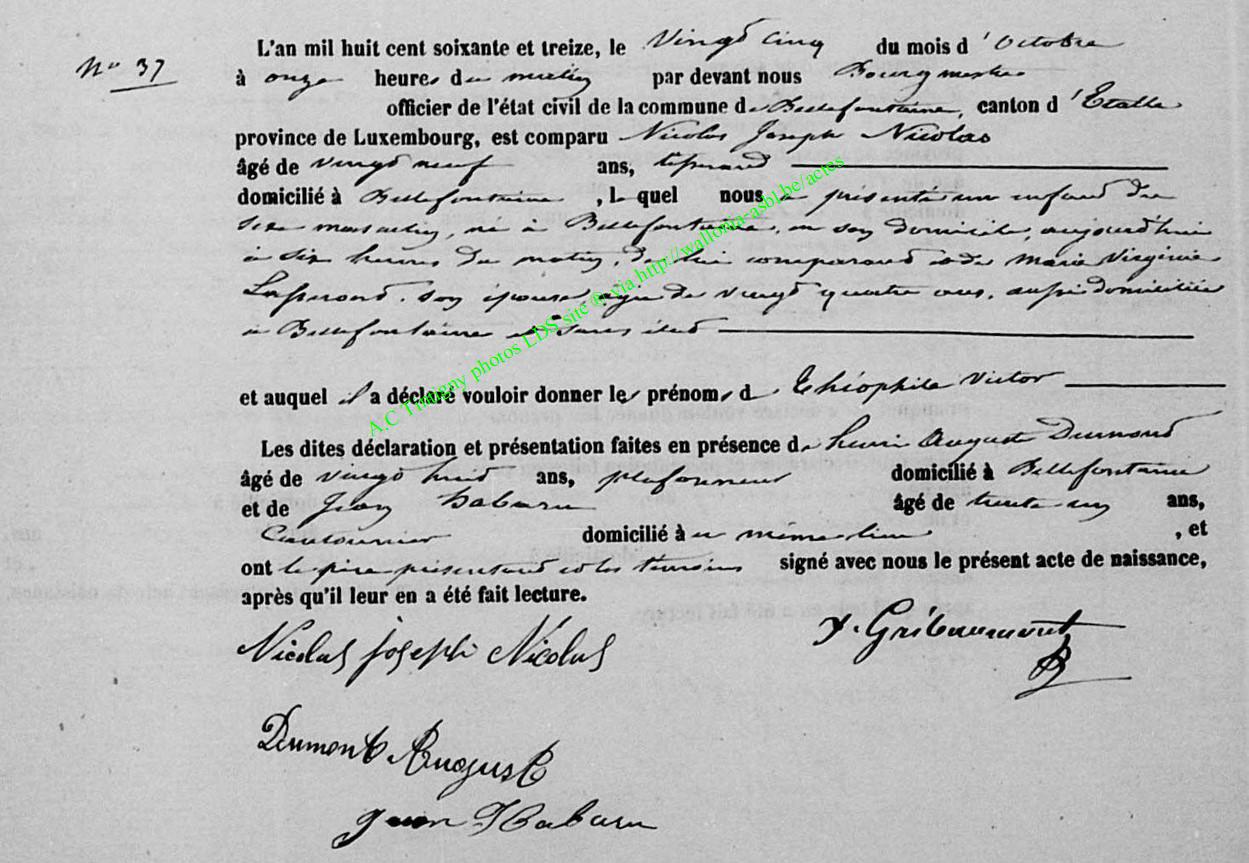 N° 37
L'an mil huit cent soixante et treize, le Vingt cinq du mois d'Octobre
à onze heures du matin par devant nous Bourgmestre
officier de l'état civil de la commune de Bellefontaine, canton d'Etalle
province de Luxembourg, est comparu Nicolas Joseph Nicolas
âgé de vingt neuf ans, tisserand
domicilié à Bellefontaine, lequel nous a présenté un enfant du
sexe masculin, né à Bellefontaine, en son domicile, aujourd'hui
à six heures du matin, de lui comparant et de Marie Virginie
son épouse, agée de vingt quatre ans, aussi domiciliée
à Bellefontaine et sans état
et auquel il a déclaré vouloir donner les prénoms de Théophile Victor
Les dites déclaration et présentation faites en présence de henri Auguste Dumont
âgé de vingt huit ans, plafonneur domicilié à Bellefontaine
et de Jean Habaru âgé de trente un ans,
Cantonnier domicilié à u même lieu, et
ont le père présentant et les témoins signé avec nous le présent acte de naissance,
après qu'il leur en a été fait lecture.
Nicolas joseph Nicolas
Gribaumont
Dumont Auguste
jean Habaru
A.C Tintigny photos LDS site ® via http://wallonia-asbl.be/actes